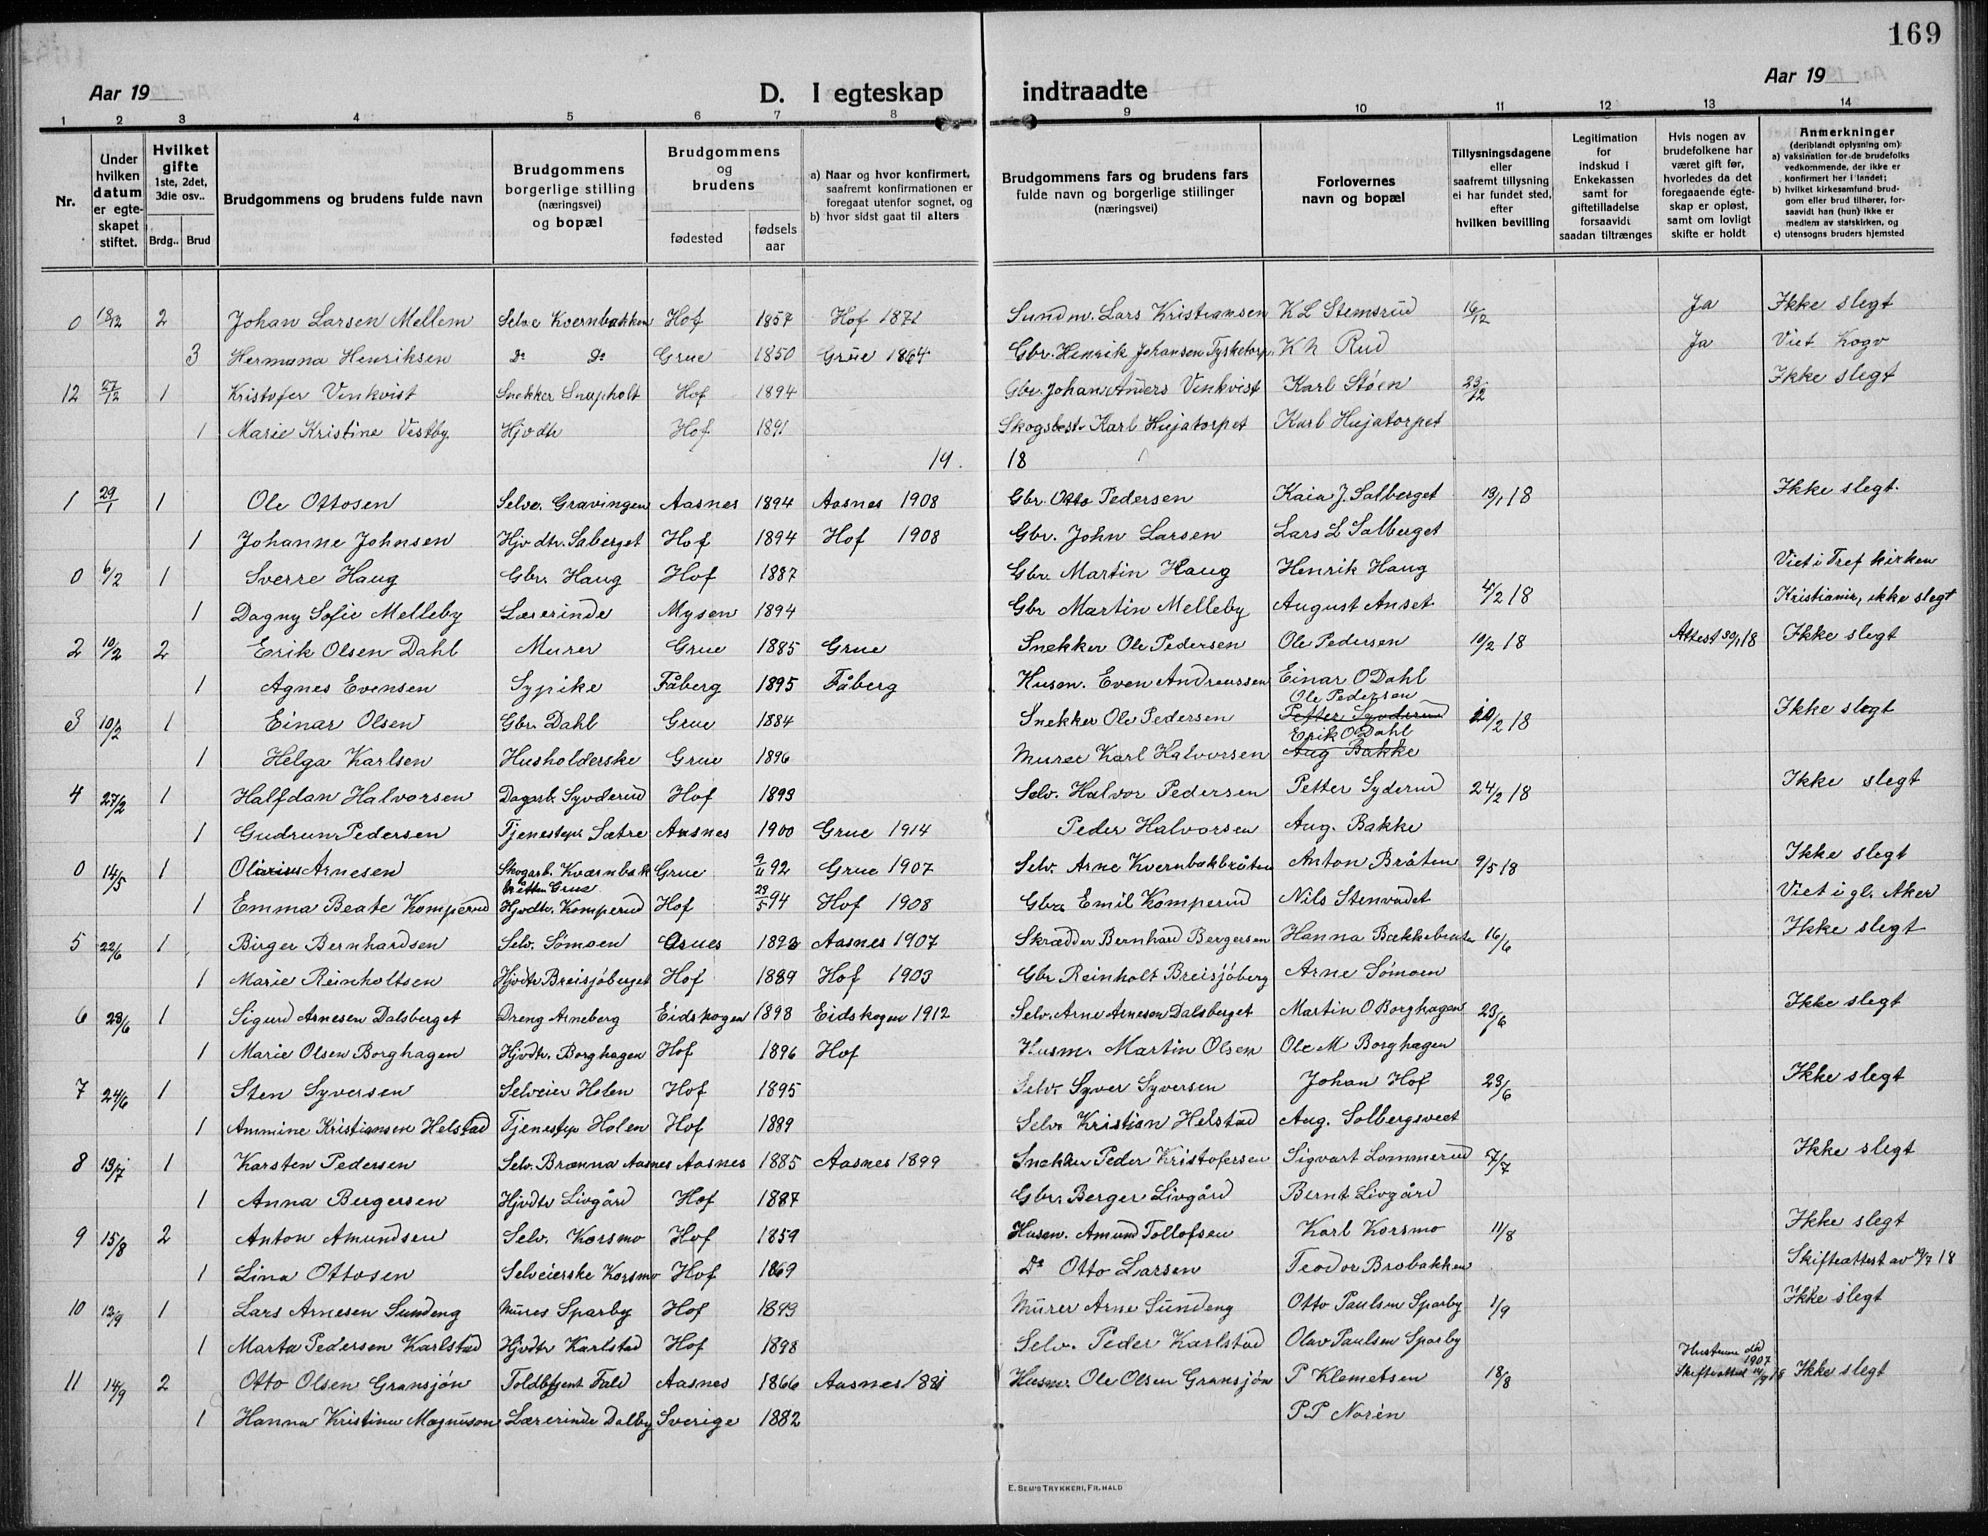 169
Aar 19 D. I egteskap indtraadte Aar 19
1 2 3 4 5 6 7 8 9 10 11 12 13 14
Nr.
Under hvilken datum er egteskapet stiftet.
Hvilket gifte 1ste, 2det, 3die osv..
Brdg.. Brud
Brudgommens og brudens fulde navn
Brudgommens borgerlige stilling (næringsvei) og bopæl
Brudgommens og brudens
fødested
fødsels aar
a) Naar og hvor konfirmert, saafremt konfirmationen er foregaat utenfor sognet, og
b) hvor sidst gaat til alters
Brudgommens fars og brudens fars fulde navn og borgerlige stiilinger (næringsvei)
Forlovernes navn og bopæl
Tillysningsdagene eller saafremt tillysning ei har fundet sted, efter hvilken bevilling
Legitimation for indskud i Enkekassen samt for giftetilladelse forsaavidt saadan tiltrænges
Hvis nogen av brudefolkene har været gift før, hvorledes da det foregaaende egteskap er opløst, samt om lovligt skifte er holdt
Anmerkninger (deriblandt oplysning om):
a) vaksination for de brudefolks vedkommende, der ikke er konfirmert her i landet;
b) hvilket kirkesamfund brudgom eller brud tilhører, forsaavidt han (hun) ikke er medlem av statskirken, og
c) utensogns bruders hjemsted
0 18/12 2 Johan Larsen Mellem Selve Kvernbakken Hof 1857 Hof 1871 Sundm. Lars Kristiansen K L Stemsrud 16/12 Ja Ikke slegt
3 Hermana Henriksen do do Grue 1850 Grue 1864 Gbr. Henrik Johansen Tysketorp. K N Rud Ja Viet Kogv
12 27/12 1 Kristofer Venkvist Snekker Snapholt Hof 1894 Gbr. Johan Anders Venkvist Karl Støen 23/12 Ikke slegt
1 Marie Kristine Vestby Hjvdtr Hof 1891 Skogsbest. Karl Hujatorpet Karl Hujatorpet
19. 18
1 29/1 1 Ole Ottosen Selve. Gravingen Aasnes 1894 Aasnes 1908 Gbr. Otto Pedersen Kaia J. Salberget 19/1 18 Ikke slegt.
1 Johanne Johnsen Hjvdtr. Saberget Hof 1894 Hof 1908 Gbr. John Larsen Lars L Salberget
0 6/2 1 Sverre Haug Gbr. Haug Hof 1887 Gbr Martin Haug Henrik Haug Viet i Tref kirken
1 Dagny Sofie Melleby Lærerinde Mysen 1894 Gbr Martin Melleby August Anset 4/2 18 Kristiania, ikke slegt
2 10/2 2 Erik Olsen Dahl Murer Grue 1885 Grue Snekker Ole Pedersen Ole Pedersen 10/2 18 Attest 30/1 18 Ikke slegt
1 Agnes Evensen Sypike Fåberg 1895 Fåberg Husm. Even Andreassen Einar O Dahl
3 10/2 1 Einar Olsen Gbr. Dahl Grue 1884 Snekker Ole Pedersen Ole Pedersen Petter Syverud 10/2 18 Ikke slegt
1 Helga Karlsen Husholderske Grue 1896 Murer Karl Halvorsen Erik O Dahl Aug Bakke
4 27/2 1 Halfdan Halvorsen Dagarb. Syvderud Hof 1893 Selv. Halvor Pedersen Petter Syderud 24/2 18 Ikke slegt
1 Gudrun Pedersen Tjenestepr Sætre Aasnes 1900 Grue 1914 Peder Halvorsen Aug. Bakke
0 14/5 1 Olarius Arnesen Skogarb. Kværnbakbråtten Grue Grue 9/6 92 Grue 1907 Selv. Arne Kvernbakbråten Anton Bråten 9/5 18 Ikke slegt
1 Emma Beate Komperud Hjvdtr. Komperud Hof 23/5 94 Hof 1908 Gbr. Emil Komperud Nils Stenvadet Viet i gl. Aker
5 22/6 1 Birger Bernhardsen Selv. Sömoen Grues 1892 Aasnes 1907 Skrædder Bernhard Bergersen Hanna Bækkebraten 16/6 Ikke slegt
1 Marie Reinholtsen Hjvdtr Breisjøberget Hof 1889 Hof 1903 Gbr Reinholt Breisjöberg Arne Sömoen
6 23/6 1 Sigurd Arnesen Dalsberget Dreng Arneberg Eidskogen 1898 Eidskogen 1912 Selv. Arne Arnesen Dalsberget Martin O Borghagen 23/6 Ikke slegt
1 Marie Olsen Borghagen Hjvdtr. Borghagen Hof 1896 Hof Husm. Martin Olsen Ole M Borghagen
7 24/6 1 Sten Syversen Selveier Holen Hof 1895 Selv. Syver Syversen Johan Hof 23/6 Ikke slegt
1 Ammine Kristiansen Helstad Tjenestep Holen Hof 1889 Selv. Kristian Helstad Aug. Solbergsveet
8 13/7 1 Karsten Pedersen Selv. Brænna Aasnes Aasnes 1885 Aasnes 1899 Snekker Peder Kristofersen Sigvart Lommerud 7/7 Ikke slegt
1 Anna Bergersen Hjvdtr Livgård Hof 1887 Gbr. Berger Livgård Bernt Livgård
9 15/8 2 Anton Amundsen Selv. Korsmo Hof 1859 Husm. Amund Tollofsen Karl Korsmo 11/8 Ikke slegt
1 Lina Ottosen Selveierske Korsmo Hof 1869 Do Otto Larsen Teodor Brobakken Skifteattest av 19/7 18
10 12/9 1 Lars Arnesen Sundeng Murer Sparby Hof 1893 Murer Arne Sundeng Otto Paulsen Sparby 1/9 Ikke slegt
1 Marta Pedersen Karlstad Hjvdtr Karlstad Hof 1898 Selv. Peder Karlstad Olav Paulsen Sparby
11 14/9 2 Otto Olsen Gransjøn Toldbetjent Fald Aasnes 1866 Aasnes 1881 Husm. Ole Olsen Gransjøn P Klemetsen 18/8 Hustruen död 1907 Skifteattest Ikke slegt
1 Hanna Kristine Magnuson Lærerinde Dalby Sverige 1882 P.P Norén
E. SEM'S TRYKKERI, FR. HALD